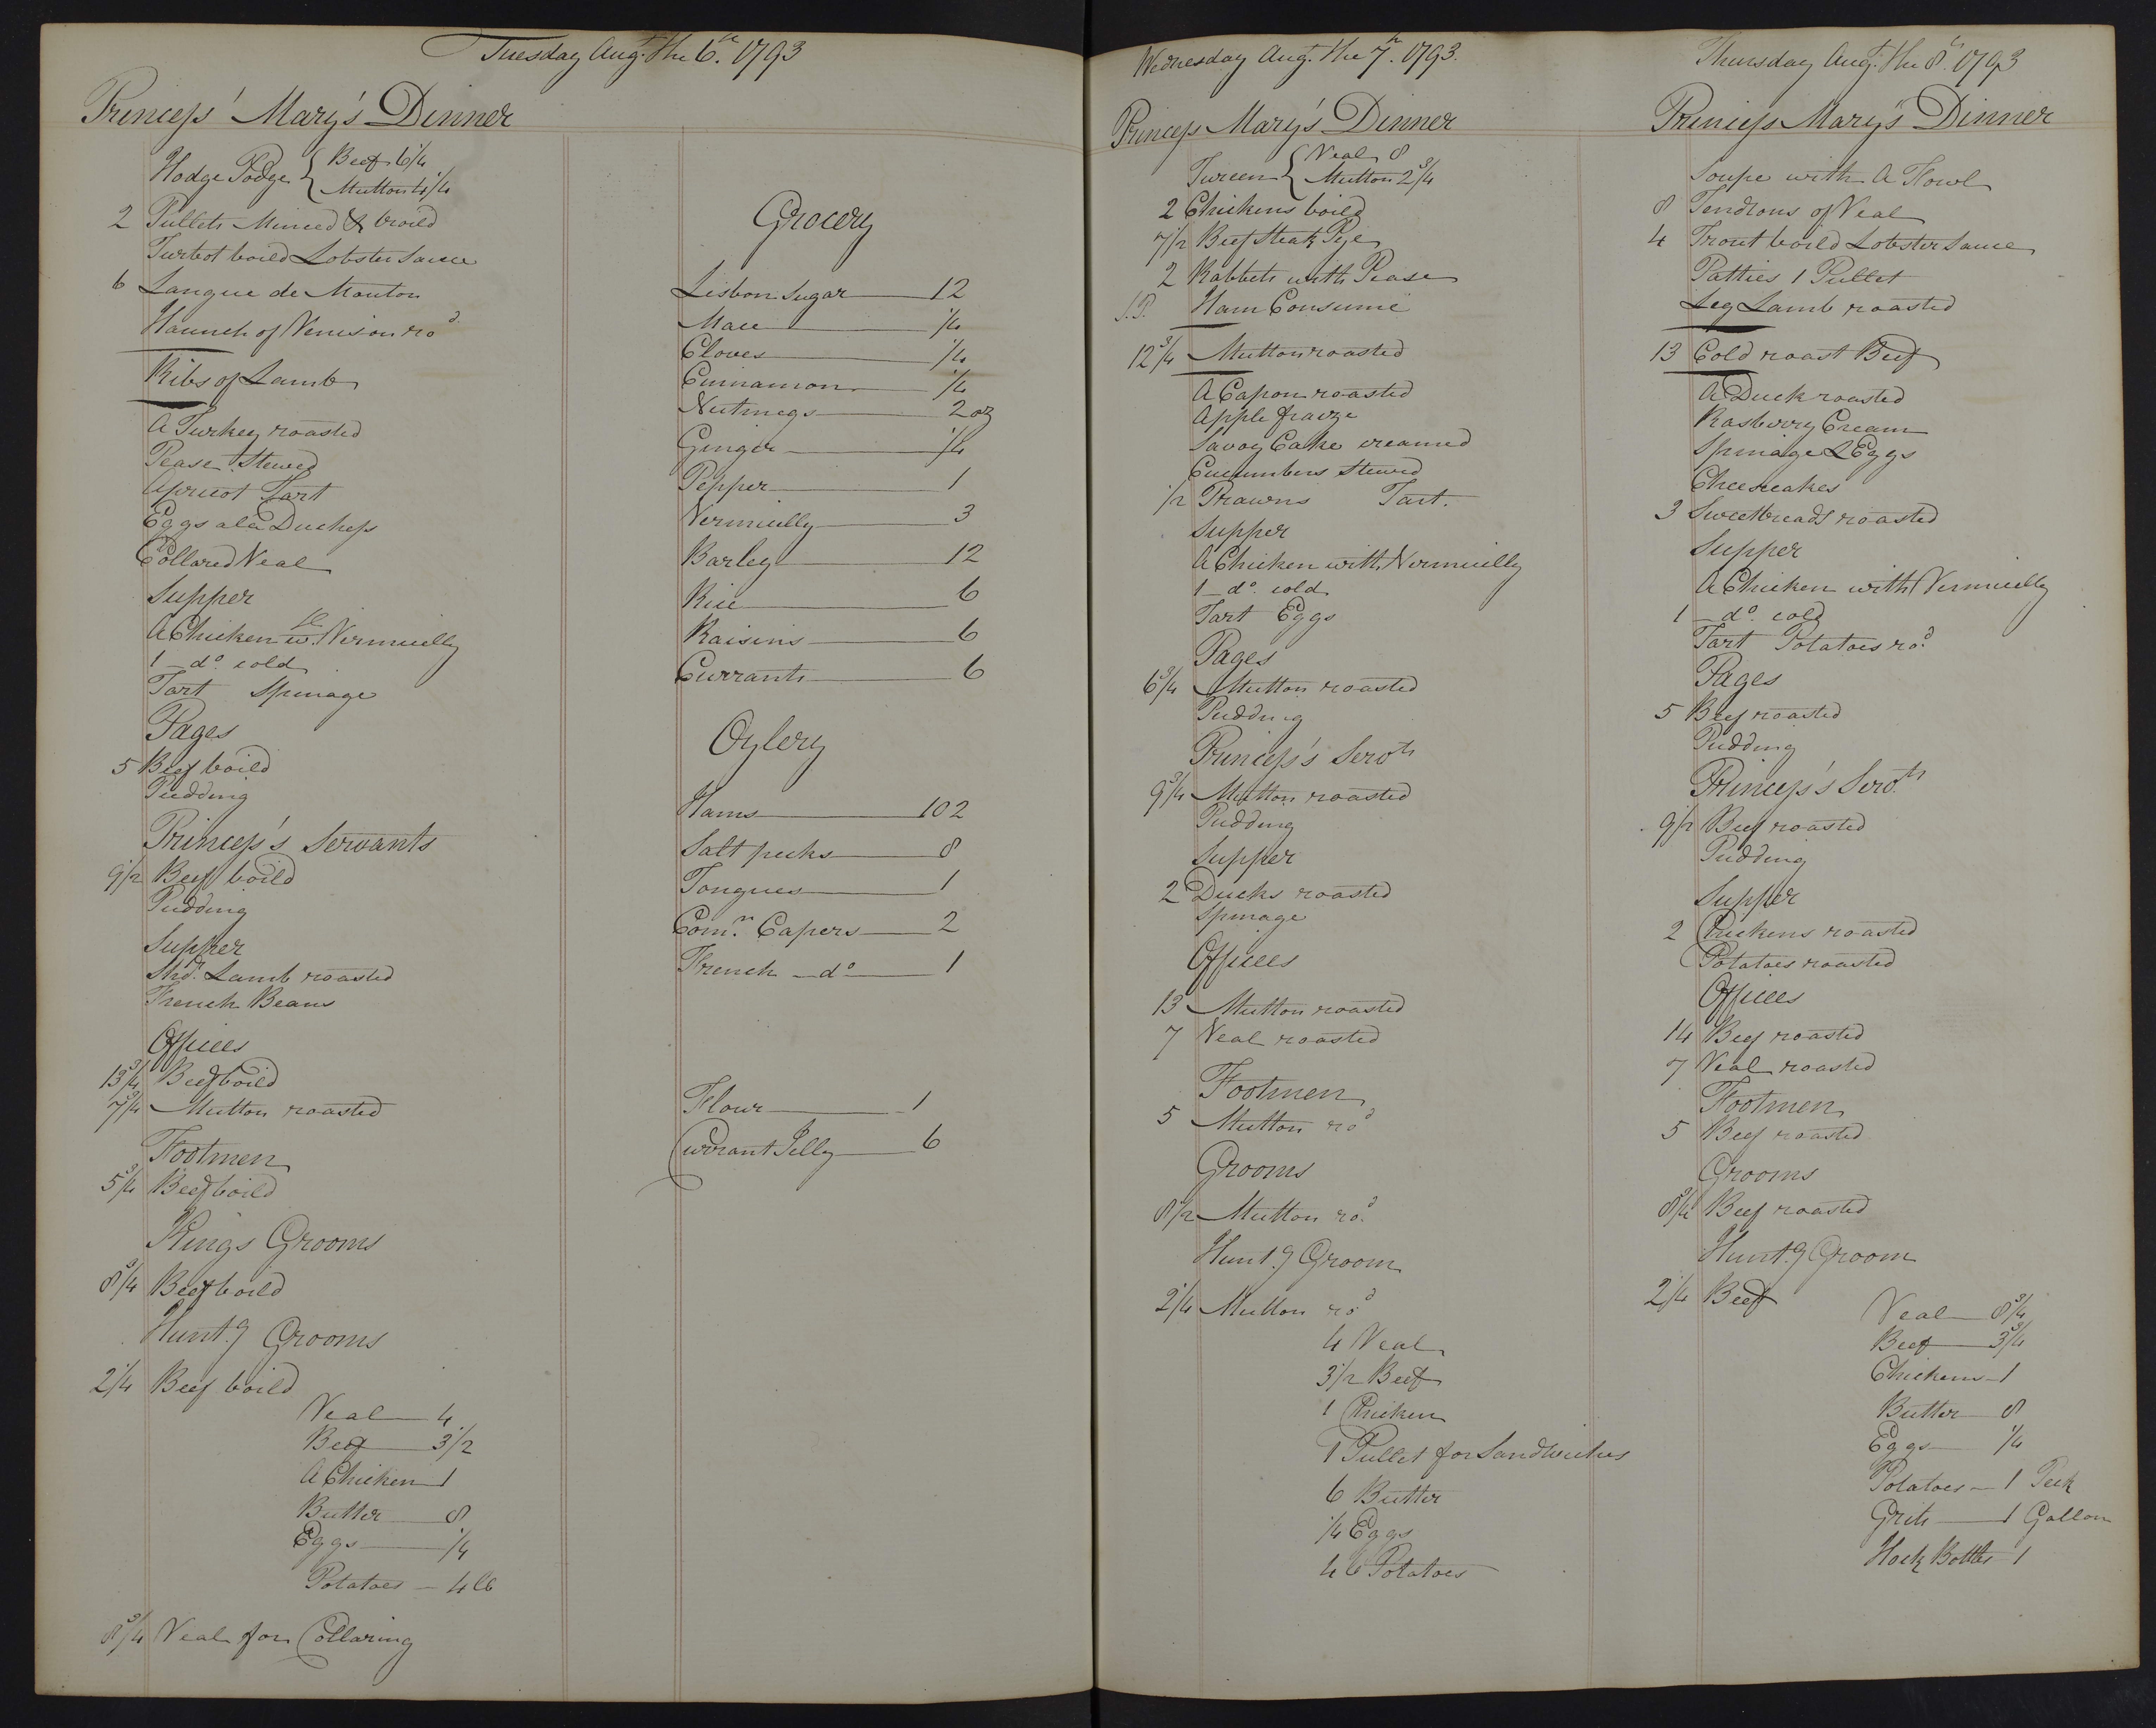 Tuesday Augt. the 6th. 1793
Princess' Mary's Dinner
Hodge Podge { Beef 6 1/4
Mutton 4 1/4
2 Pullets Minced & broild
Turbot boild Lobster Sauce
6 Langue de Mouton
Haunch of Venison rod
Ribs of Lamb
A Turkey roasted
Pease Stewed
Apricot Tart
Eggs ala Duchess
Collared Veal
Supper
A Chicken wth. Vermicelly
1 do. cold
Tart Spinage
Pages
5 Beef boild
Pudding
Princess's Servants
9 1/2 Beef boild
Pudding
Supper
Shdr. Lamb roasted
French Beans
Offices
13 3/4 Beef boild
7 3/4 Mutton roasted
Footmen
5 3/4 Beef boild
Kings Grooms
8 3/4 Beef boild
Huntg Grooms
2 1/4 Beef boild
Veal 4
Beef 3 1/2
A Chicken 1
Butter 8
Eggs 1/4
Potatoes 4 lb
8 3/4 Veal for Collaring
Grocery
Lisbon Sugar 12
Mace 1/4
Cloves 1/4
Cinnamon 1/4
Nutmegs 2 oz
Ginger 1/4
Pepper 1
Vermicelly 3
Barley 12
Rice 6
Raisins 6
Currants 6
Oylery
Hams 102
Salt pecks 8
Tongues 1
Comn. Capers 2
French do 1
Flour 1
Currant Jelly 6
Wednesday Augt. the 7th. 1793.
Princess Mary's Dinner
Tureen { Veal 8
Mutton 2 3/4
2 Chickens boild
7 1/2 Beef Steak Pye
2 Rabbets with Pease
S.P. Ham Consumé
12 3/4 Mutton roasted
A Capon roasted
Apple fraize
Savoy Cake creamed
Cucumbers Stewed
1/2 Prawns Tart.
Supper
A Chicken with Vermicelly
1 do. cold
Tart Eggs
Pages
6 3/4 Mutton roasted
Pudding
Princess's Servts
9 3/4 Mutton roasted
Pudding
Supper
2 Ducks roasted
Spinage
Offices
13 Mutton roasted
7 Veal roasted
Footmen
5 Mutton rod
Grooms
8 1/2 Mutton rod.
Huntg Groom
2 1/4 Mutton rod
4 Veal
3 1/2 Beef
1 Chicken
1 Pullet for Sandwiches
6 Butter
1/4 Eggs
4 lb Potatoes
Thursday Augt. the 8th. 1793
Princess Mary's Dinner
Soupe with A Fowl
8 Tendrons of Veal
4 Trout boild Lobster Sauce
Patties 1 Pullet
Leg Lamb roasted
13 Cold roast Beef
A Duck roasted
Rasberry Cream
Spinage & Eggs
Cheescakes
3 Sweetbreads roasted
Supper
A Chicken with Vermicelly
1 do. cold
Tart Potatoes rod.
Pages
5 Beef roasted
Pudding
Princess's Servts
9 1/2 Beef roasted
Pudding
Supper
2 Chickens roasted
Potatoes roasted
Offices
14 Beef roasted
7 Veal roasted
Footmen
5 Beef roasted
Grooms
8 3/4 Beef roasted
Huntg Groom
2 1/4 Beef
Veal 8 3/4
Beef 3 3/4
Chickens 1
Butter 8
Eggs 1/4
Potatoes 1 Peck
Grits 1 Gallon
Hock Bottles 1